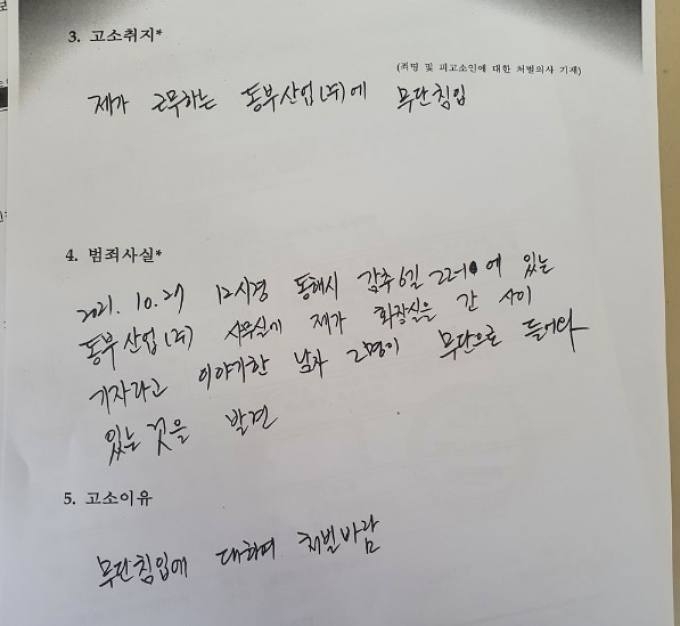 3. 고소취지*
(죄명 및 피고소인에 대한 처벌의사 기재)
제가 근무하는 동부산업(주)에 무단침입
4. 범죄사실*
2021. 10. 27 12시경 동해시 감추6길 22-1에 있는
동부산업(주) 사무실에 제가 화장실을 간 사이
기자라고 이야기한 남자 2명이 무단으로 들어와
있는 것을 발견
5. 고소이유
무단침입에 대하여 처벌바람